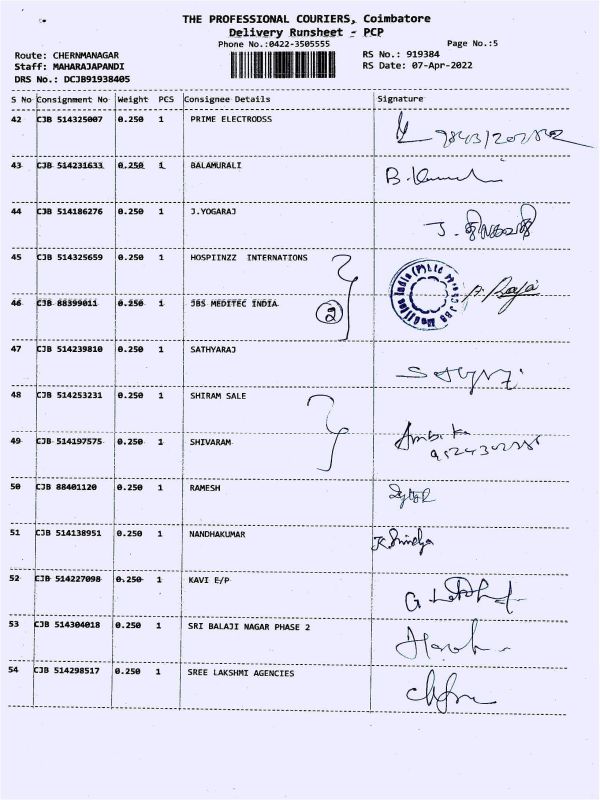 THE PROFESSIONAL COURIERS, Coimbatore
Delivery Runsheet - PCP
Phone No.:0422-3505555
Page No.:5
Route: CHERNMANAGAR
RS No.: 919384
Staff: MAHARAJAPANDI
RS Date: 07-Apr-2022
DRS No.: DCJB91938405
S No Consignment No Weight PCS Consignee Details Signature
42 CJB 514325007 0.250 1 PRIME ELECTRODSS
43 CJB 514231633 0.250 1 BALAMURALI B.
44 CJB 514186276 0.250 1 J.YOGARAJ J.
45 CJB 514325659 0.250 1 HOSPIINZZ INTERNATIONS
46 CJB 88399011 0.250 1 JBS MEDITEC INDIA 2 A. Raja
47 CJB 514239810 0.250 1 SATHYARAJ
48 CJB 514253231 0.250 1 SHIRAM SALE
49 CJB 514197575 0.250 1 SHIVARAM Ambika
50 CJB 88401120 0.250 1 RAMESH
51 CJB 514138951 0.250 1 NANDHAKUMAR
52 CJB 514227098 0.250 1 KAVI E/P G
53 CJB 514304018 0.250 1 SRI BALAJI NAGAR PHASE 2
54 CJB 514298517 0.250 1 SREE LAKSHMI AGENCIES